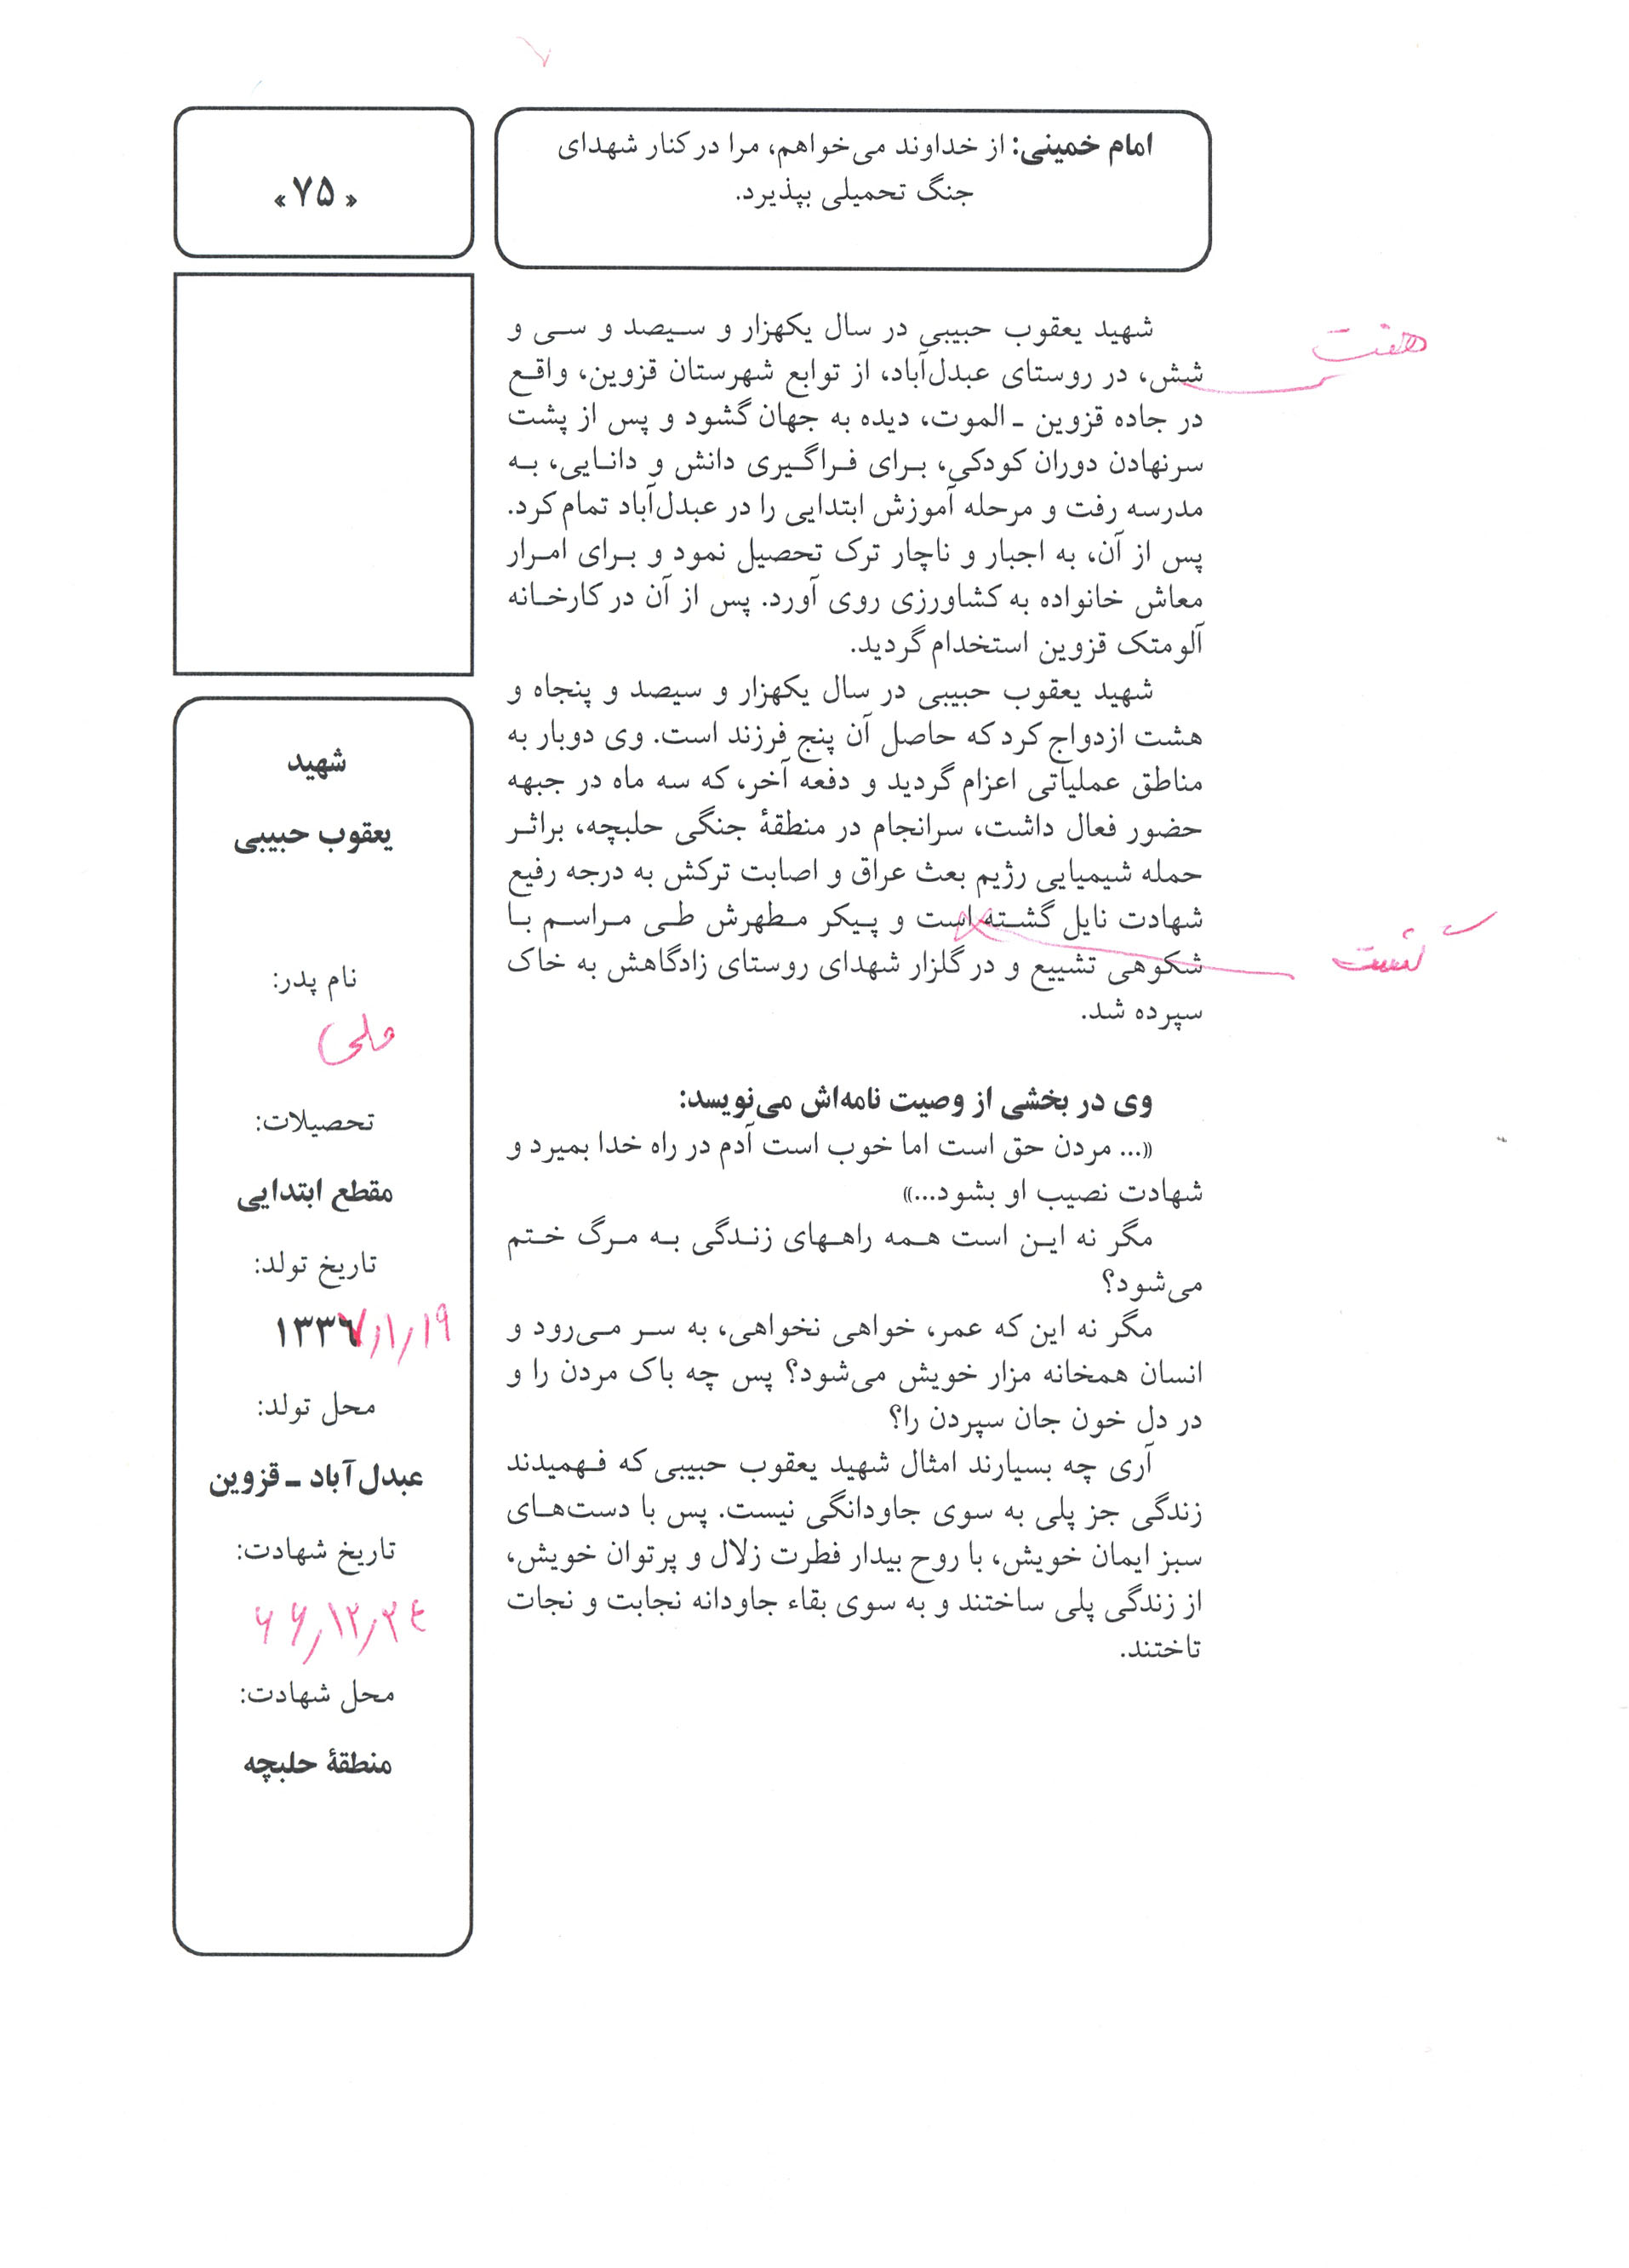 امام خمینی: از خداوند می‌خواهم، مرا در کنار شهدای
جنگ تحمیلی بپذیرد.
« ۷۵ »
شهید یعقوب حبیبی در سال یکهزار و سیصد و سی و
شش، در روستای عبدل‌آباد، از توابع شهرستان قزوین، واقع
هفت
در جاده قزوین ـ الموت، دیده به جهان گشود و پس از پشت
سرنهادن دوران کودکی، برای فراگیری دانش و دانایی، به
مدرسه رفت و مرحله آموزش ابتدایی را در عبدل‌آباد تمام کرد.
پس از آن، به اجبار و ناچار ترک تحصیل نمود و برای امرار
معاش خانواده به کشاورزی روی آورد. پس از آن در کارخانه
آلومتک قزوین استخدام گردید.
شهید یعقوب حبیبی در سال یکهزار و سیصد و پنجاه و
هشت ازدواج کرد که حاصل آن پنج فرزند است. وی دوبار به
مناطق عملیاتی اعزام گردید و دفعه آخر، که سه ماه در جبهه
حضور فعال داشت، سرانجام در منطقهٔ جنگی حلبچه، براثر
حمله شیمیایی رژیم بعث عراق و اصابت ترکش به درجه رفیع
شهادت نایل گشته است و پیکر مطهرش طی مراسم با
گشت
شکوهی تشییع و در گلزار شهدای روستای زادگاهش به خاک
سپرده شد.
وی در بخشی از وصیت نامه‌اش می‌نویسد:
«... مردن حق است اما خوب است آدم در راه خدا بمیرد و
شهادت نصیب او بشود...»
مگر نه این است همه راههای زندگی به مرگ ختم
می‌شود؟
مگر نه این که عمر، خواهی نخواهی، به سر می‌رود و
انسان همخانه مزار خویش می‌شود؟ پس چه باک مردن را و
در دل خون جان سپردن را؟
آری چه بسیارند امثال شهید یعقوب حبیبی که فهمیدند
زندگی جز پلی به سوی جاودانگی نیست. پس با دست‌های
سبز ایمان خویش، با روح بیدار فطرت زلال و پرتوان خویش،
از زندگی پلی ساختند و به سوی بقاء جاودانه نجابت و نجات
تاختند.
شهید
یعقوب حبیبی
نام پدر:
علی
تحصیلات:
مقطع ابتدایی
تاریخ تولد:
۱۳۳۷/۱/۱۹
محل تولد:
عبدل آباد ـ قزوین
تاریخ شهادت:
۶۶/۱۲/۲۴
محل شهادت:
منطقهٔ حلبچه